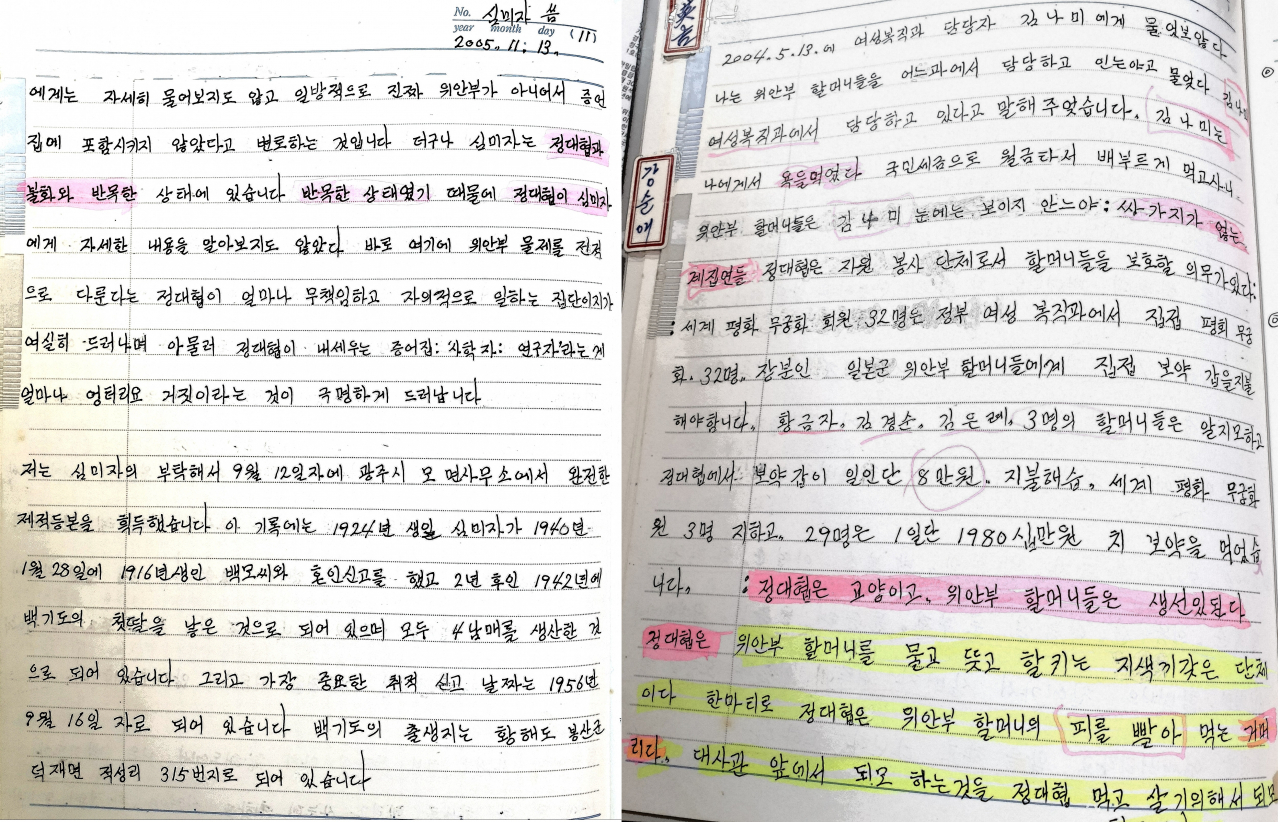 No. 심미자 씀
year month day (11)
2005. 11. 13.
에게는 자세히 물어보지도 않고 일방적으로 진짜 위안부가 아니어서 증언
집에 포함시키지 않았다고 변로하는 것입니다 더구나 심미자는 정대협과
불화와 반목한 상태에 있습니다 반목한 상태였기 때물에 정대협이 심미자
에게 자세한 내용을 알아보지도 않았다 바로 여기에 위안부 물제를 전적
으로 다룬다는 정대협이 얼마나 무책임하고 자의적으로 일하는 집단이지가
여실히 드러나며 아물러 정대협이 내세우는 증어집: 사학자: 연구자라는게
얼마나 엉터리요 거짓이라는 것이 극명하게 드러납니다
저는 심미자의 부탁해서 9월 12일자에 광주시 모 면사무소에서 완전한
제적등본을 획득했습니다 이 기록에는 1924년 생일 심미자가 1940년
1월 28일에 1916년생인 백모씨와 혼인신고를 했고 2년 후인 1942년에
백기도의 첫딸을 낳은 것으로 되어 있으며 모두 4남매를 생산한 것
으로 되어 있습니다 그리고 가장 중요한 취적 신고 날짜는 1956년
9월 16일 자로 되어 있습니다 백기도의 출생지는 황해도 봉산군
덕재면 적성리 315번지로 되어 있습니다
강순애
2004. 5. 13. 에 여성복직과 담당자 김나미에게 물엇보않다
나는 위안부 할머니들을 어느과에서 담당하고 인는야고 물엊다
여성복직과에서 담당하고 있다고 말해 주엊습니다. 김나미는
나에게서 욕을먹었다 국민세금으로 월급타서 배부르게 먹고사니
위안부 할머니들은 김나미 눈에는 보이지 안느야: 싸가지가 없는
계집연들 정대협은 자원 봉사 단체로서 할머니들을 보호할 의무가있다:
: 세계 평화 무궁화 회원 32명은 정부 여성 복직과에서 집접 평회 무궁
화. 32명. 장분인 일본군 위안부 할머니들에게 집접 보약 갑을지불
해야합니다. 황금자. 김경순. 김은례. 3명의 할머니들은 알지모하고
정대협에서 보약값이 일인단 8만원. 지불해습. 세계 평화 무궁화
원 3명 지하고. 29명은 1일단 1980십만원 치 보약을 먹었습
니다. : 정대협은 고양이고. 위안부 할머니들은 생선있된다
정대협은 위안부 할머니를 물고 뜻고 할키는 지색기갓은 단체
이다 한마티로 정대협은 위안부 할머니의 피를 빨아 먹는 거머
리다. 대사관 앞에서 되모 하는것들 정대협 먹고 살기의해서 되모